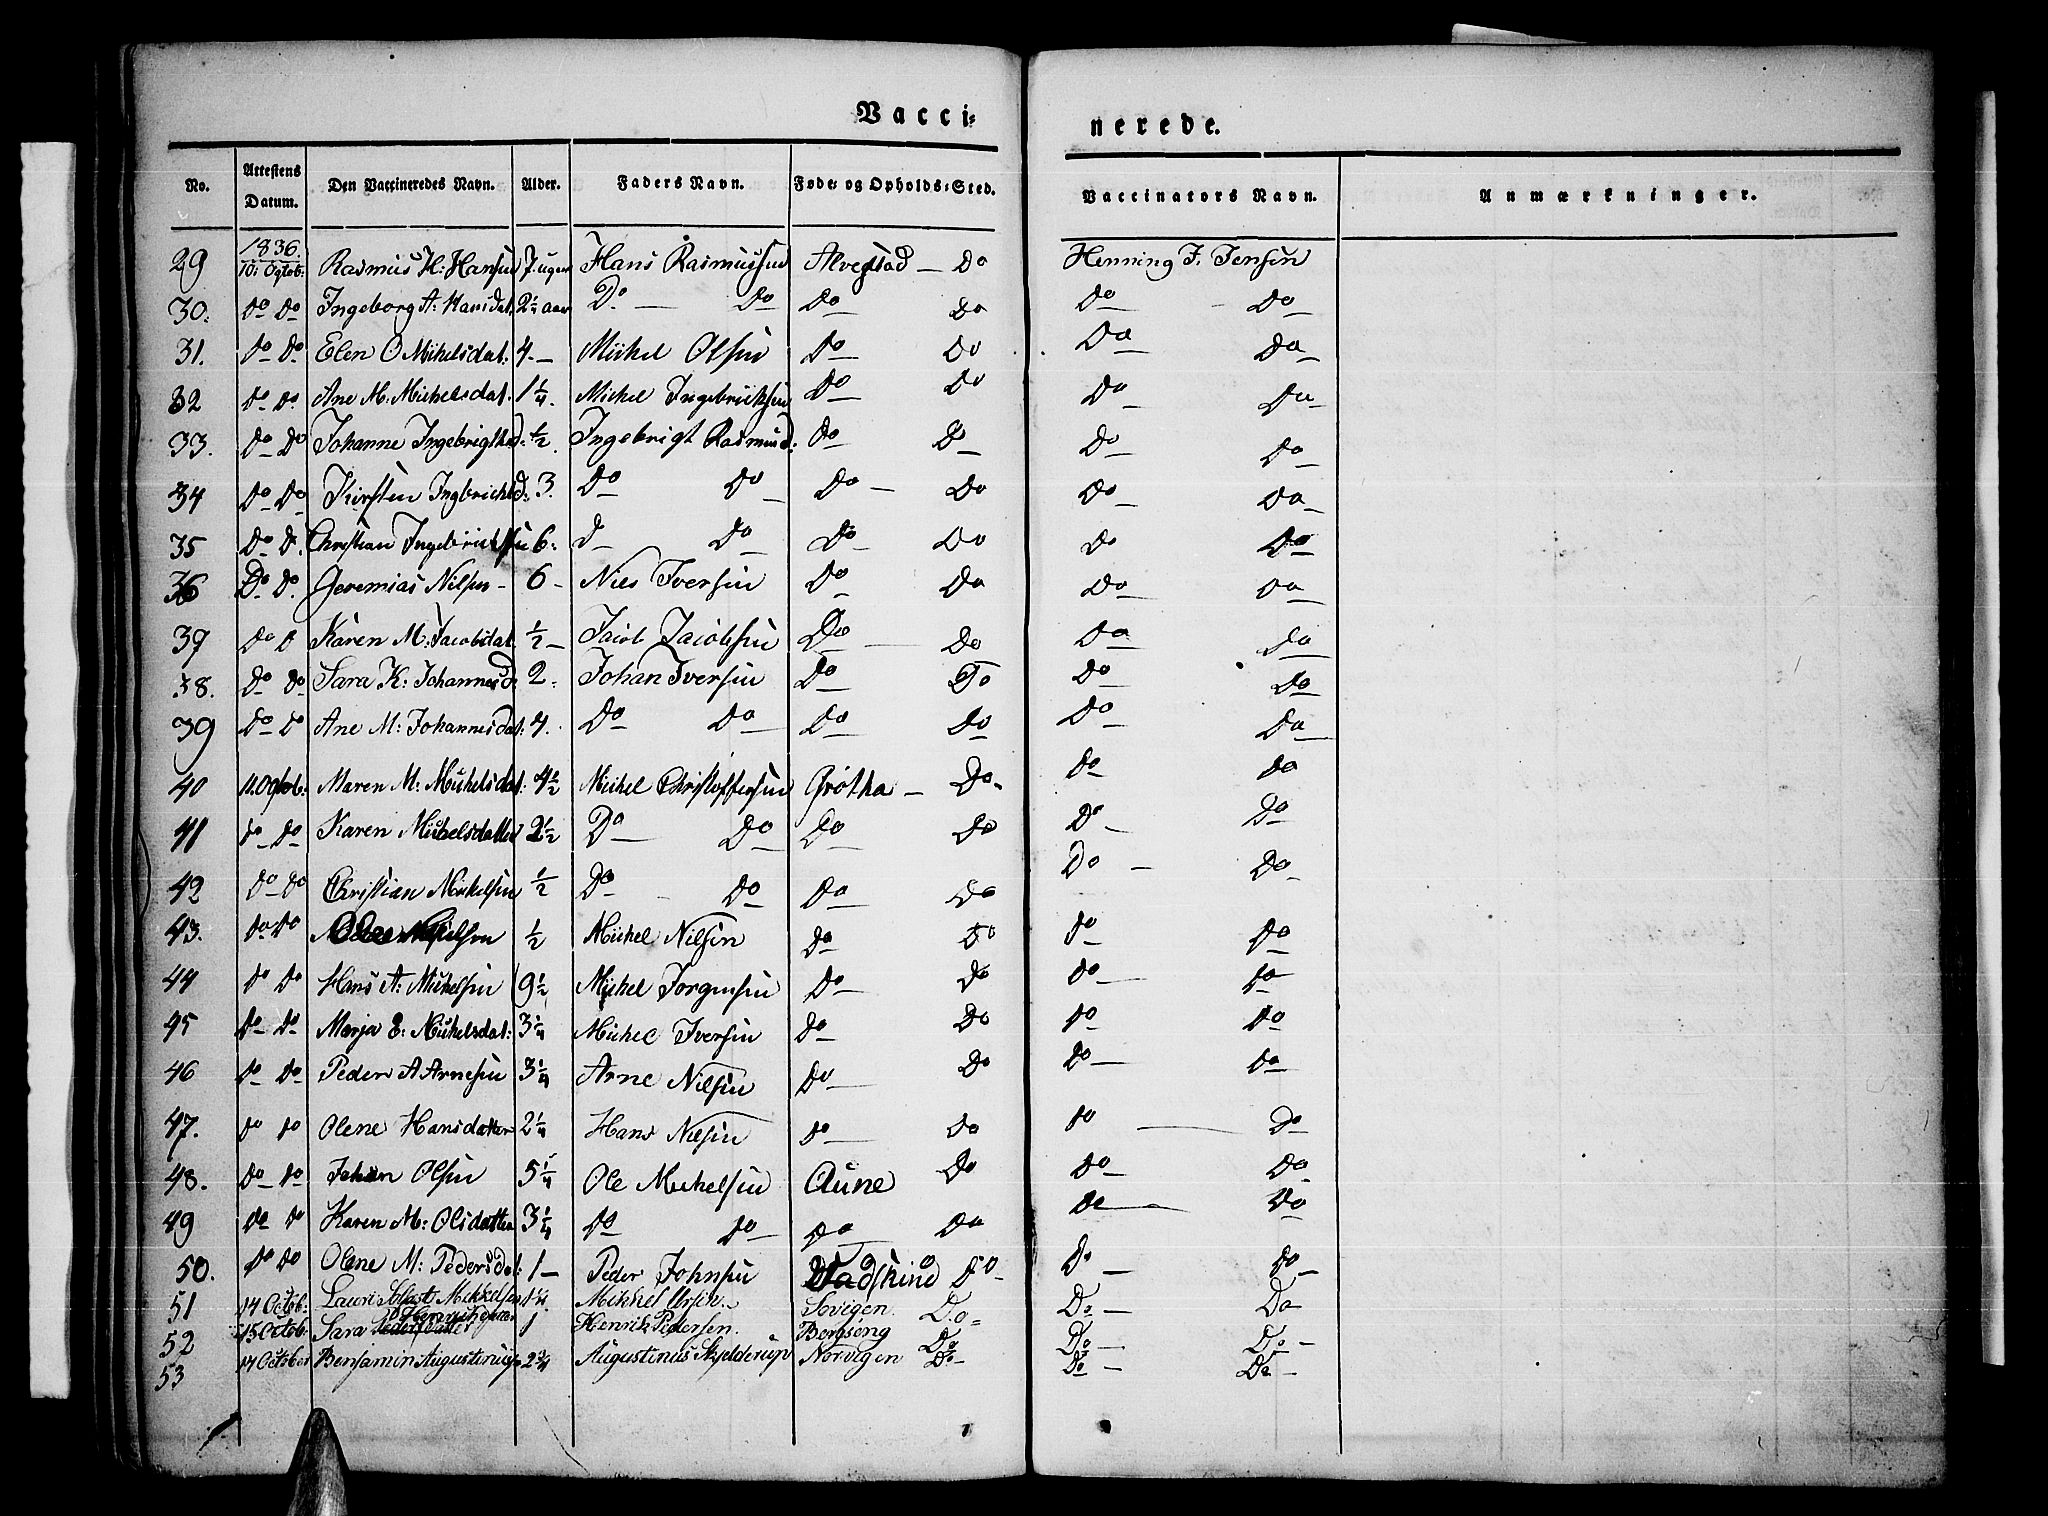 Vacci-
nerede.
No. Attestens Datum. Den Vaccineredes Navn. Alder. Faders Navn. Føde- og Opholds-Sted. Vaccinators Navn. Anmærkninger.
1836.
29 10. Ogtob: Rasmus H: Hansen 7 uger Hans Rasmussen Alvestad — Do Henning J. Jensen
30. Do Do Ingeborg A: Hansdat. 2¼ aar Do — Do Do Do Do Do
31. Do Do Elen O Mikelsdat: 4 — Mikel Olsen Do Do Do Do
32 Do Do. Ane M. Michelsdat. 1¼. Michel Ingebrichtsen Do Do Do Do
33. Do Do Johanne Ingebrigtsd: ½. Ingebrigt Rasmus: Do Do Do Do
34 Do Do Kirsten Ingbrichtsd: 3. Do Do Do — Do Do Do
35 Do D. Christian Ingebrichtsen 6: D Do Do Do Do Do
36 Do Do. Geremias Nilsen — 6 — Niels Iversen Do Do Do Do
37 Do D Karen M: Jacobsdat. ½ — Jacob Jacobsen Do Do Do Do
38. Do Do Sara K: Johannesd 2. Johan Iversen Do Do Do Do
39 Do Do Ane M: Johannesdat: 4. Do Do Do Do Do Do
40 11. Ogtob: Maren M: Michelsdat: 4½ Michel Christoffersen Grøtha — Do Do Do
41 Do Do Karen Michelsdatter 2½ Do Do Do Do Do Do
42 Do Do Christian Mikelsen ½ Do Do Do Do Do — Do
43. Do Do ½ Michel Nilsen Do Do Do Do
44 Do Do Hans A: Michelsen 9½ Michel Jørgensen Do Do Do Do
45 Do Do Marja E: Michelsdat: 3¼ Michel Iversen Do Do Do Do
46 Do Do Peder A Arnesen 3¼ Arne Nilsen Do Do Do Do
47. Do Do Olene Hansdatter 2¼ Hans Nilsen Do Do Do Do
48. Do Do Johan Olsen 5¼ Ole Mickelsen Aune Do Do Do
49 Do Do Karen M: Olsdatter 3¼ Do Do Do Do Do Do
50. Do Do Olene M: Pedersdat: 1 — Peder Johnsen Vadskind Do Do Do
51 14 Octob: Mikkelsen 1¼ Mikkel Sovigen. D.o Do — Do
52 15 Octob. Sara 1 Henrik Pedersen. Bergseng Do Do — Do —
53 14 October Benjamin 2¾ Augustinus Skjelderup Norvigen Do — Do — Do —